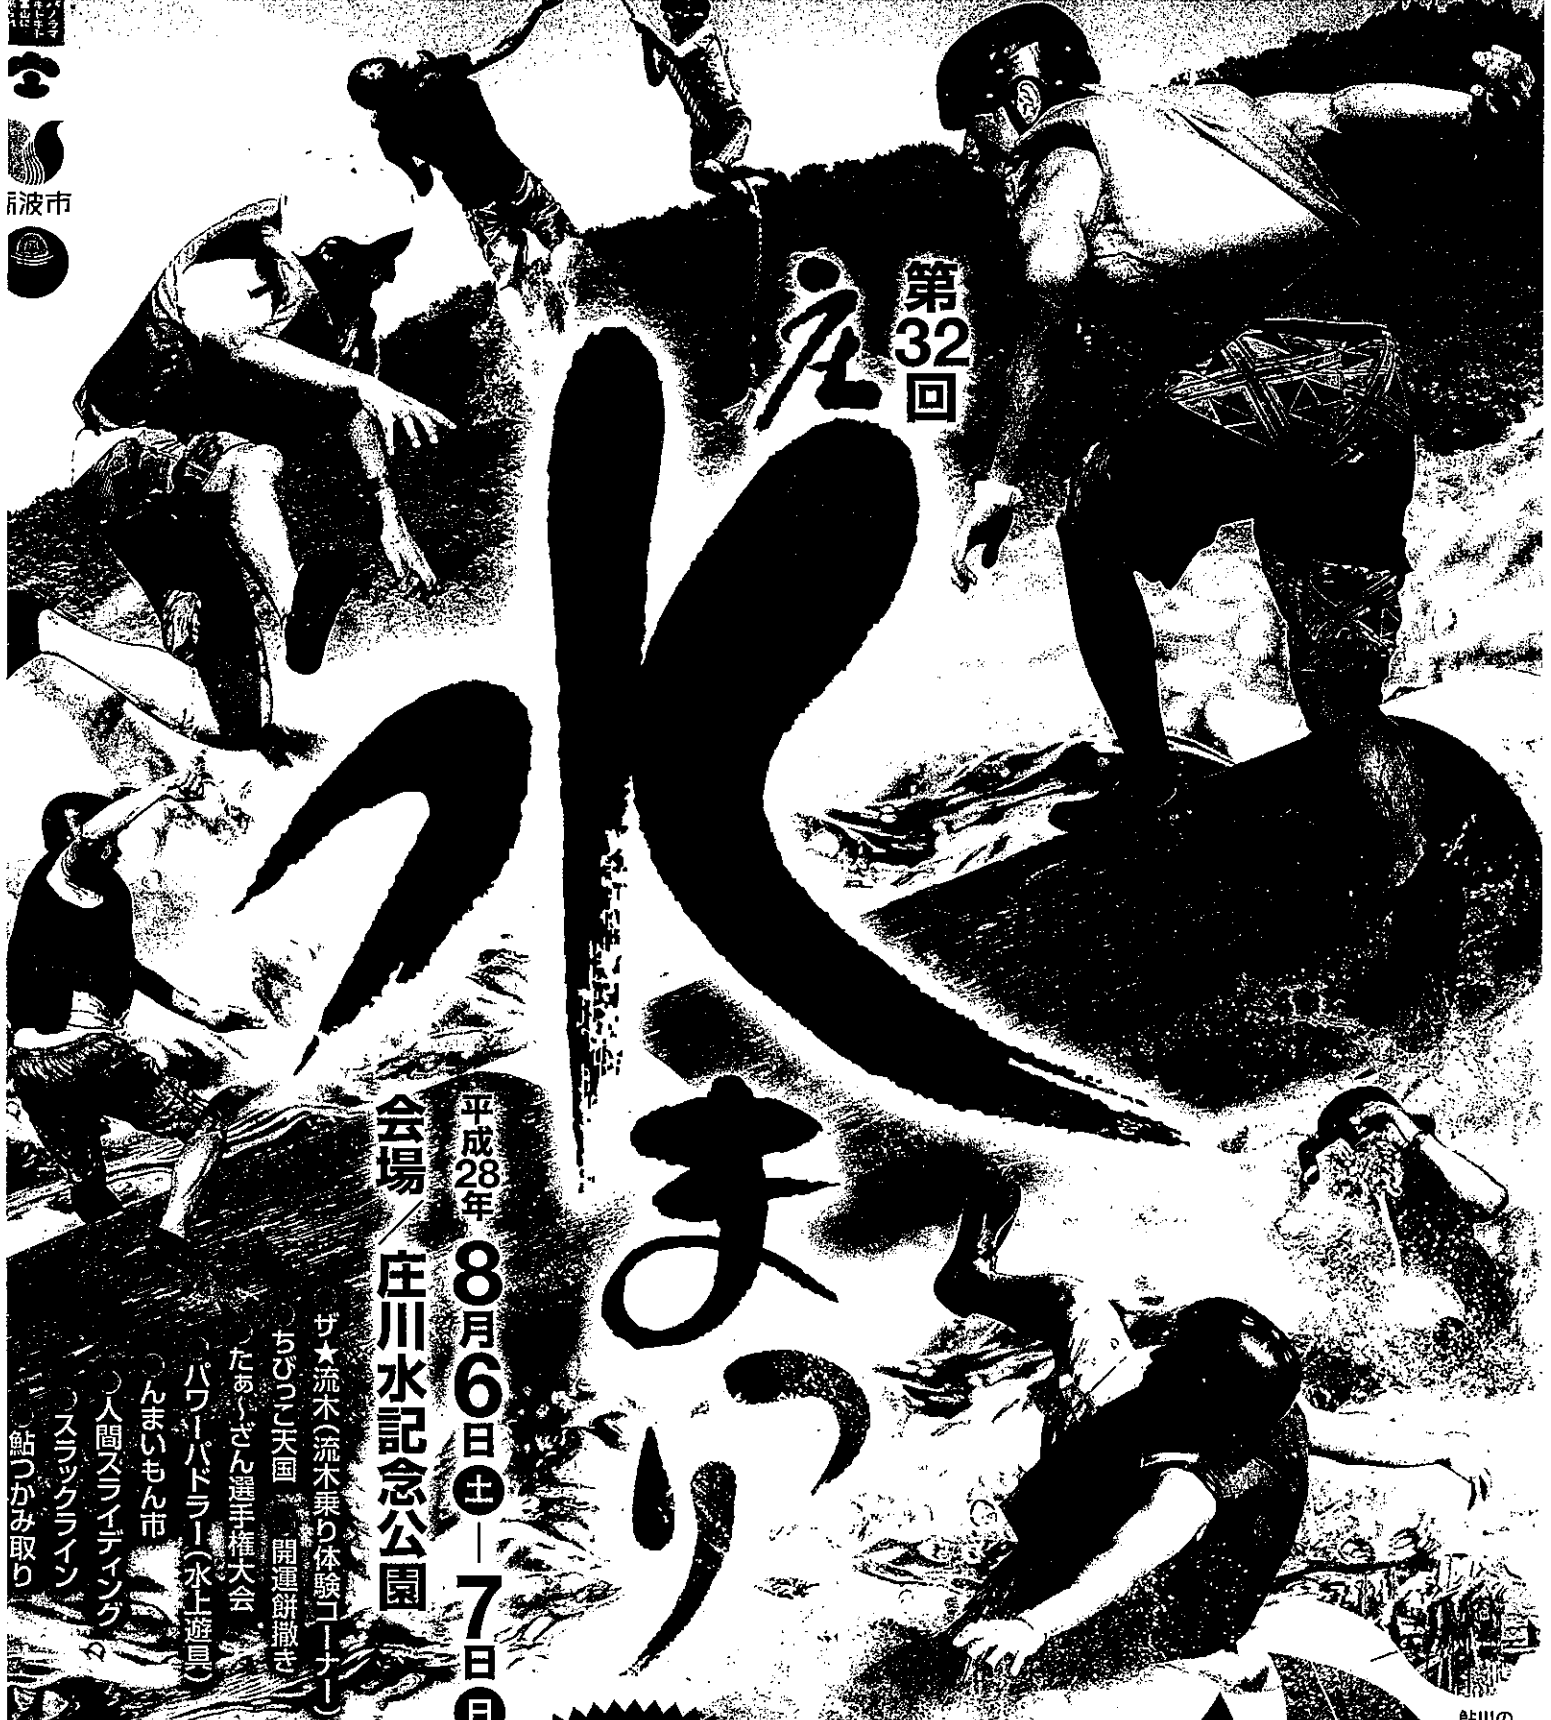 第32回
庄
水まつり
平成28年 8月6日土―7日日
会場／庄川水記念公園
ザ★流木(流木乗り体験コーナー)
ちびっこ天国 開運餅撒き
たぁ〜ざん選手権大会
パワーパドラー(水上遊具)
んまいもん市
人間スライディング
スラックライン
鮎つかみ取り
波市
鮎川の